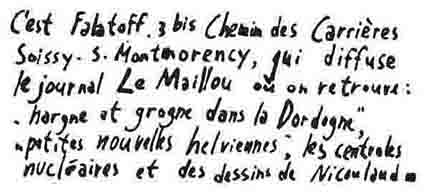 C'est Falatoff. 3 bis Chemin des Carrières
Soissy. S. Montmorency, qui diffuse
le journal Le Maillou où on retrouve:
"hargne et grogne dans la Dordogne",
"petites nouvelles helviennes", les centrales
nucléaires et des dessins de Nicoulaud